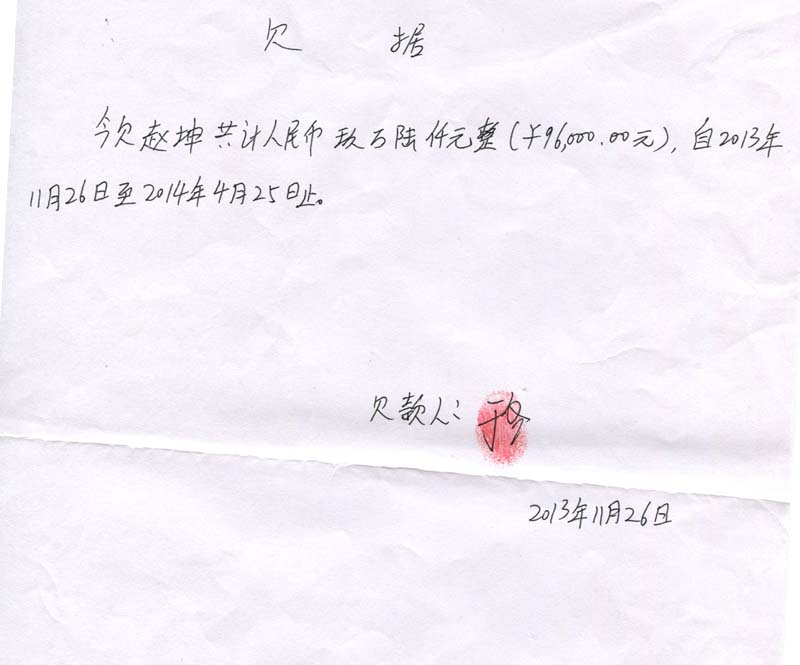 欠 据
今欠赵坤共计人民币玖万陆仟元整(￥96,000.00元),自2013年
11月26日至2014年4月25日止。
欠款人:
2013年11月26日